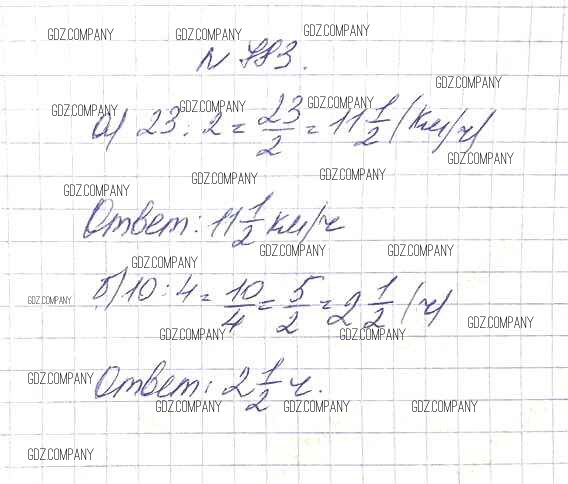 GDZ.COMPANY GDZ.COMPANY GDZ.COMPANY
N 783.
GDZ.COMPANY
GDZ.COMPANY GDZ.COMPANY GDZ.COMPANY
а) 23 : 2 = 23/2 = 11 1/2 (км/ч)
GDZ.COMPANY
GDZ.COMPANY GDZ.COMPANY GDZ.COMPANY
Ответ: 11 1/2 км/ч
GDZ.COMPANY GDZ.COMPANY GDZ.COMPANY
б) 10 : 4 = 10/4 = 5/2 = 2 1/2 (ч)
GDZ.COMPANY
GDZ.COMPANY GDZ.COMPANY GDZ.COMPANY
Ответ: 2 1/2 ч.
GDZ.COMPANY
GDZ.COMPANY GDZ.COMPANY GDZ.COMPANY
GDZ.COMPANY